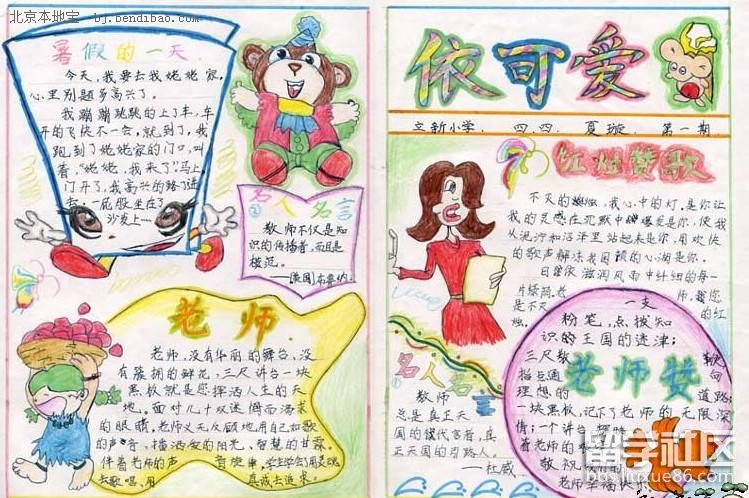 北京本地宝 - bj.bendibao.com
暑假的一天
今天，我要去我姥姥家，
心里别提多高兴了。
我蹦蹦跳跳的上了车，车
开的飞快不一会，就到了，我
跑到了姥姥家的门口，叫
着，"姥姥，我来了"。马上，
门开了，我高兴的跨了进
去，一屁股坐在了
沙发上……
名人名言
②
教师不仅是知
识的传播者，而且是
模范。
老师
老师，没有华丽的舞台，没
有簇拥的鲜花，三尺讲台一块
黑板就是您挥洒人生的天
地。面对几十双迷惘而渴求
的眼睛，老师义无反顾地用自己如歌
的声音，播洒爱的阳光、智慧的甘霖。
伴着老师的声
去歌唱、用
真诚去追求。
依可爱
立新小学. 四.四. 夏璇. 第一期
红烛赞歌
不灭的蜡烛，我心中的灯，是你让
我的灵感在沉默中爆发是你，使我
从泥泞和沼泽里站起来是你，用欢快
的歌声解冻我困顿的心涧是你。
日瞢依滋润风雨中纤细的每一
片绿简.老
师，我您
是不灭
一支
的红
烛。
粉笔，点拨知
识的王国的迷津；
三尺教
指点通向
理想的
道路；
一块黑板，记下了老师的无限深
情；一个讲台
着老师的
敬祝
老师幸福快乐
老师赞
名人名言
①
教师
总是真正天
国的代言者，真
正天国的引路人。
——杜威
留学社区
bbs.liuxue86.com